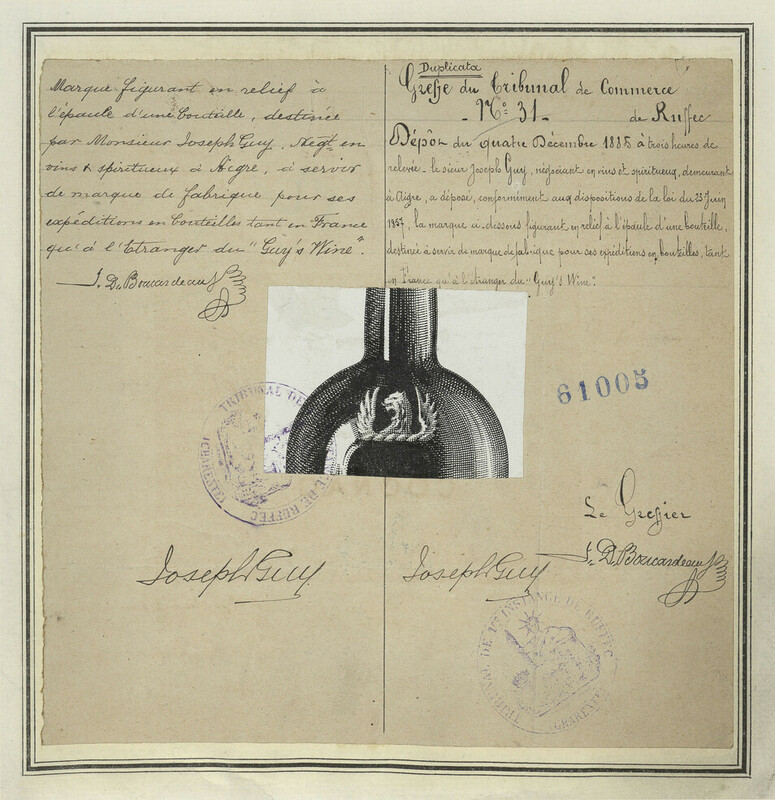 Marque figurant en relief à
l'épaule d'une bouteille, destinée
par Monsieur Joseph Guy, Négt en
vins & spiritueux à Aigre, à servir
de marque de fabrique pour ses
expéditions en bouteilles tant en France
qu'à l'Etranger du "Guy's Wine".
J. D. Boucardeau
Duplicata
Greffe du Tribunal de Commerce
- No 31 - de Ruffec
Dépôt du quatre Décembre 1885 à trois heures de
relevée. le sieur Joseph Guy, négociant en vins et spiritueux, demeurant
à Aigre, a déposé, conformément aux dispositions de la loi du 23 Juin
1857, la marque ci-dessous figurant en relief à l'épaule d'une bouteille,
destinée à servir de marque de fabrique pour ses expéditions en bouteilles, tant
en France qu'à l'étranger du "Guy's Wine".
61005
TRIBUNAL DE
CE DE RUFFEC
(CHARENTE)
Le Greffier
J. D. Boucardeau
Joseph Guy
Joseph Guy
TRIBUNAL DE 1re INSTANCE DE RUFFEC
(CHARENTE)